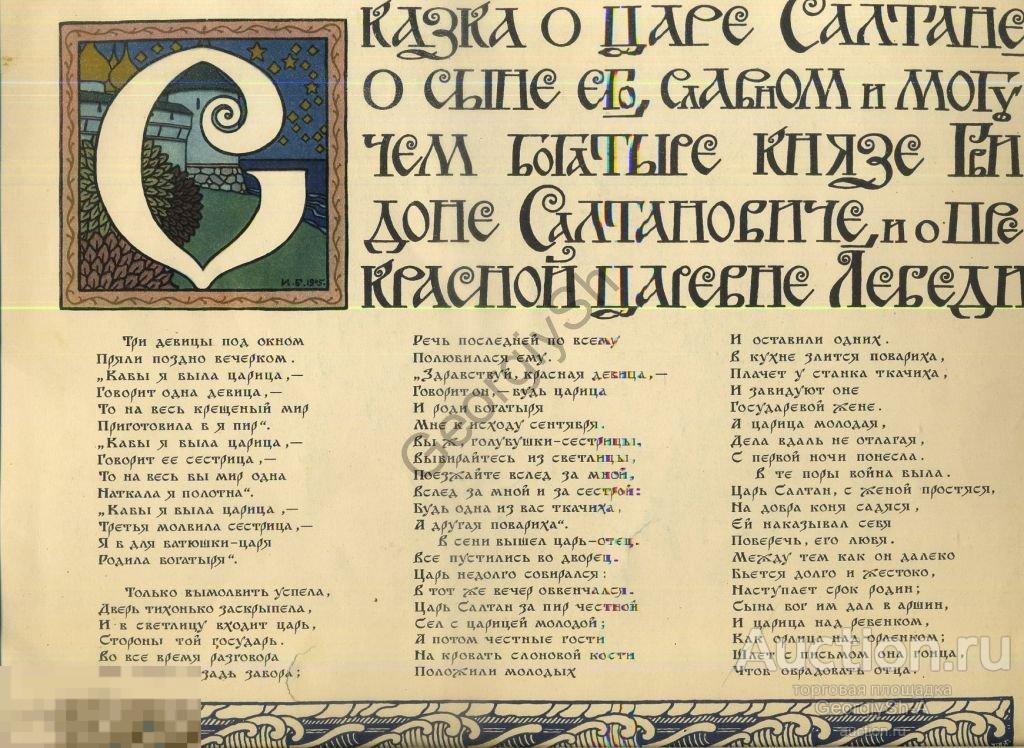 СКАЗКА О ЦАРЕ САЛТАНЕ
О СЫНЕ ЕГО, СЛАВНОМ И МОГУ
ЧЕМ БОГАТЫРЕ КНЯЗЕ ГВИ
ДОНЕ САЛТАНОВИЧЕ, И О ПРЕ
КРАСНОЙ ЦАРЕВНЕ ЛЕБЕДИ
И.Б. 1905.
Три девицы под окном
Пряли поздно вечерком.
„Кабы я была царица,—
Говорит одна девица,—
То на весь крещеный мир
Приготовила б я пир“.
„Кабы я была царица,—
Говорит ее сестрица,—
То на весь бы мир одна
Наткала я полотна“.
„Кабы я была царица,—
Третья молвила сестрица,—
Я б для батюшки-царя
Родила богатыря“.
Только вымолвить успела,
Дверь тихонько заскрыпела,
И в светлицу входит царь,
Стороны той государь.
Во все время разговора
задь забора;
Речь последней по всему
Полюбилася ему.
„Здравствуй, красная девица,—
Говорит он,—будь царица
И роди богатыря
Мне к исходу сентября.
Вы ж, голубушки-сестрицы,
Выбирайтесь из светлицы,
Поезжайте вслед за мной,
Вслед за мной и за сестрой:
Будь одна из вас ткачиха,
А другая повариха“.
В сени вышел царь-отец.
Все пустились во дворец.
Царь недолго собирался:
В тот же вечер обвенчался.
Царь Салтан за пир честной
Сел с царицей молодой;
А потом честные гости
На кровать слоновой кости
Положили молодых
И оставили одних.
В кухне злится повариха,
Плачет у станка ткачиха,
И завидуют оне
Государевой жене.
А царица молодая,
Дела вдаль не отлагая,
С первой ночи понесла.
В те поры война была.
Царь Салтан, с женой простяся,
На добра коня садяся,
Ей наказывал себя
Поберечь, его любя.
Между тем как он далеко
Бьется долго и жестоко,
Наступает срок родин;
Сына бог им дал в аршин,
И царица над ребенком,
Как орлица над орленком;
Шлет с письмом она гонца,
Чтоб обрадовать отца.
GeorgiySh
Auction.ru
торговая площадка
GeorgiyShA
auction.ru